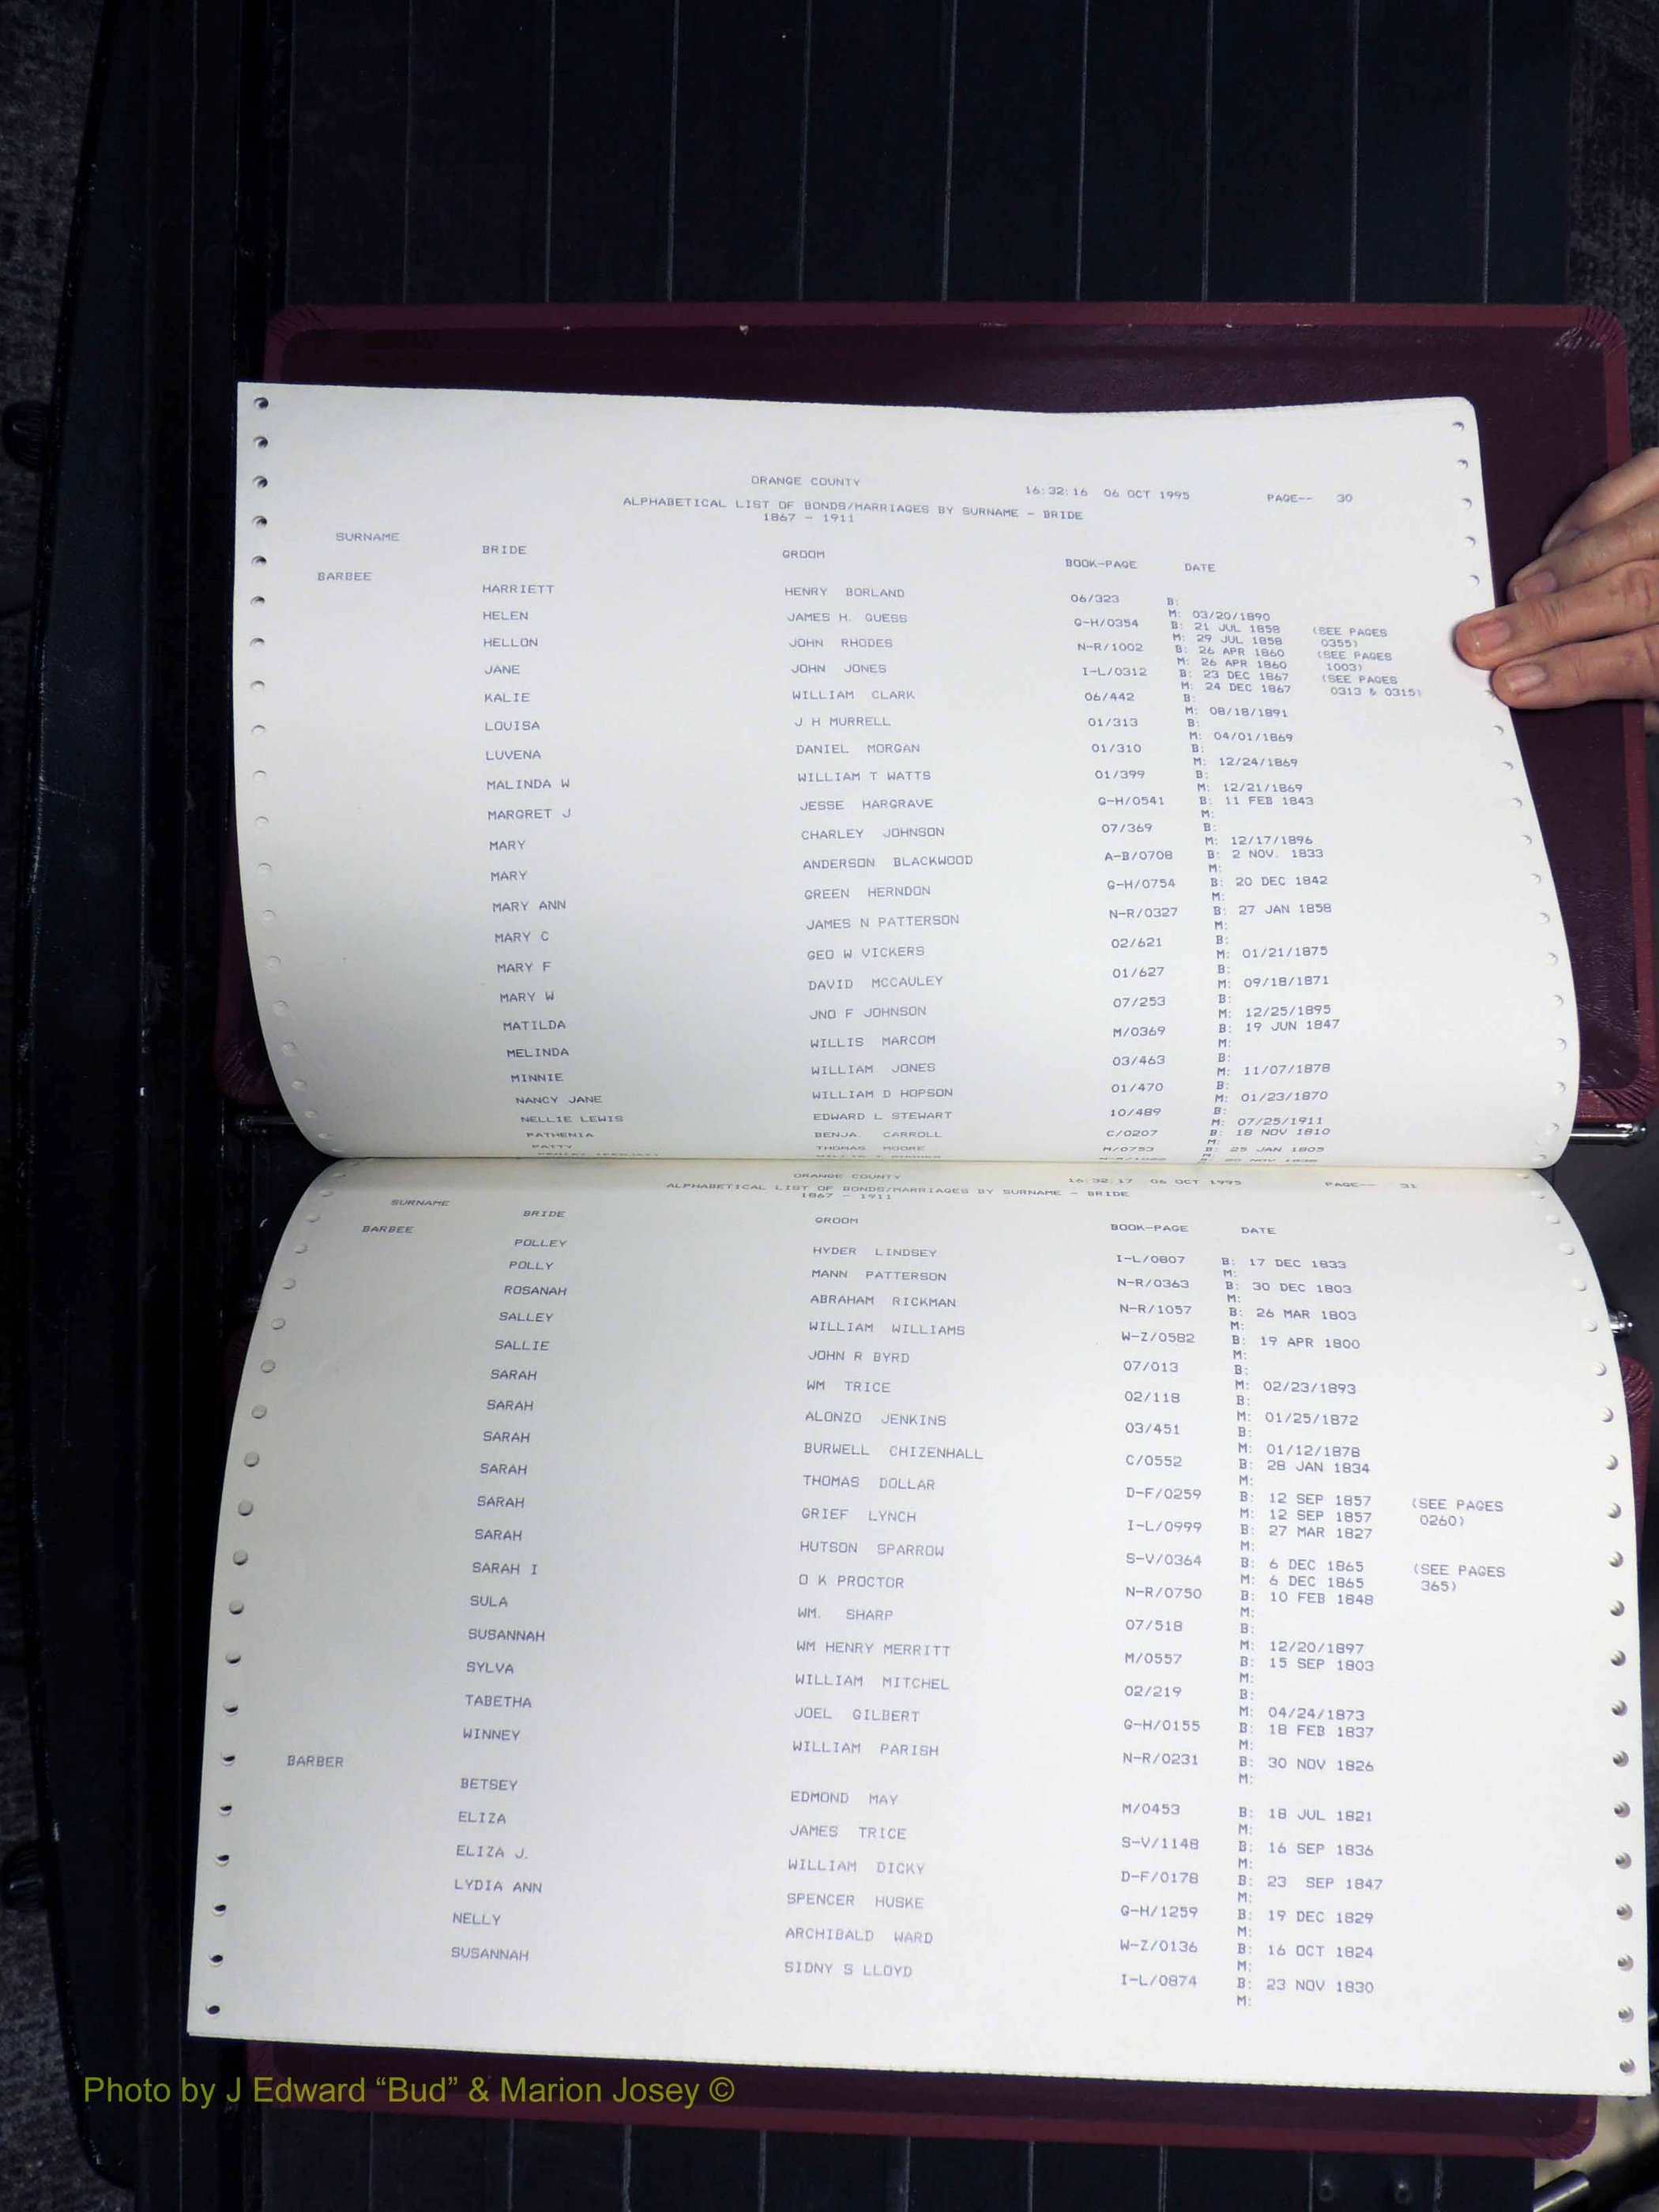 ORANGE COUNTY 16:32:16 06 OCT 1995 PAGE-- 30
ALPHABETICAL LIST OF BONDS/MARRIAGES BY SURNAME - BRIDE
1867 - 1911
SURNAME BRIDE GROOM BOOK-PAGE DATE
BARBEE
HARRIETT HENRY BORLAND 06/323 B:
M: 03/20/1890
HELEN JAMES H. GUESS G-H/0354 B: 21 JUL 1858 (SEE PAGES
M: 29 JUL 1858 0355)
HELLON JOHN RHODES N-R/1002 B: 26 APR 1860 (SEE PAGES
M: 26 APR 1860 1003)
JANE JOHN JONES I-L/0312 B: 23 DEC 1867 (SEE PAGES
M: 24 DEC 1867 0313 & 0315)
KALIE WILLIAM CLARK 06/442 B:
M: 08/18/1891
LOUISA J H MURRELL 01/313 B:
M: 04/01/1869
LUVENA DANIEL MORGAN 01/310 B:
M: 12/24/1869
MALINDA W WILLIAM T WATTS 01/399 B:
M: 12/21/1869
MARGRET J JESSE HARGRAVE G-H/0541 B: 11 FEB 1843
M:
MARY CHARLEY JOHNSON 07/369 B:
M: 12/17/1896
MARY ANDERSON BLACKWOOD A-B/0708 B: 2 NOV. 1833
M:
MARY ANN GREEN HERNDON G-H/0754 B: 20 DEC 1842
M:
MARY C JAMES N PATTERSON N-R/0327 B: 27 JAN 1858
M:
MARY F GEO W VICKERS 02/621 B:
M: 01/21/1875
MARY W DAVID MCCAULEY 01/627 B:
M: 09/18/1871
MATILDA JNO F JOHNSON 07/253 B:
M: 12/25/1895
MELINDA WILLIS MARCOM M/0369 B: 19 JUN 1847
M:
MINNIE WILLIAM JONES 03/463 B:
M: 11/07/1878
NANCY JANE WILLIAM D HOPSON 01/470 B:
M: 01/23/1870
NELLIE LEWIS EDWARD L STEWART 10/489 B:
M: 07/25/1911
PATHENIA BENJA. CARROLL C/0207 B: 18 NOV 1810
M:
PATTY THOMAS MOORE M/0753 B: 25 JAN 1803
M:
ORANGE COUNTY 16:32:17 06 OCT 1995 PAGE-- 31
ALPHABETICAL LIST OF BONDS/MARRIAGES BY SURNAME - BRIDE
1867 - 1911
SURNAME BRIDE GROOM BOOK-PAGE DATE
BARBEE
POLLEY HYDER LINDSEY I-L/0807 B: 17 DEC 1833
M:
POLLY MANN PATTERSON N-R/0363 B: 30 DEC 1803
M:
ROSANAH ABRAHAM RICKMAN N-R/1057 B: 26 MAR 1803
M:
SALLEY WILLIAM WILLIAMS W-Z/0582 B: 19 APR 1800
M:
SALLIE JOHN R BYRD 07/013 B:
M: 02/23/1893
SARAH WM TRICE 02/118 B:
M: 01/25/1872
SARAH ALONZO JENKINS 03/451 B:
M: 01/12/1878
SARAH BURWELL CHIZENHALL C/0552 B: 28 JAN 1834
M:
SARAH THOMAS DOLLAR D-F/0259 B: 12 SEP 1857 (SEE PAGES
M: 12 SEP 1857 0260)
SARAH GRIEF LYNCH I-L/0999 B: 27 MAR 1827
M:
SARAH HUTSON SPARROW S-V/0364 B: 6 DEC 1865 (SEE PAGES
M: 6 DEC 1865 365)
SARAH I O K PROCTOR N-R/0750 B: 10 FEB 1848
M:
SULA WM. SHARP 07/518 B:
M: 12/20/1897
SUSANNAH WM HENRY MERRITT M/0557 B: 15 SEP 1803
M:
SYLVA WILLIAM MITCHEL 02/219 B:
M: 04/24/1873
TABETHA JOEL GILBERT G-H/0155 B: 18 FEB 1837
M:
WINNEY WILLIAM PARISH N-R/0231 B: 30 NOV 1826
M:
BARBER
BETSEY EDMOND MAY M/0453 B: 18 JUL 1821
M:
ELIZA JAMES TRICE S-V/1148 B: 16 SEP 1836
M:
ELIZA J. WILLIAM DICKY D-F/0178 B: 23 SEP 1847
M:
LYDIA ANN SPENCER HUSKE G-H/1259 B: 19 DEC 1829
M:
NELLY ARCHIBALD WARD W-Z/0136 B: 16 OCT 1824
M:
SUSANNAH SIDNY S LLOYD I-L/0874 B: 23 NOV 1830
M:
Photo by J Edward “Bud” & Marion Josey ©